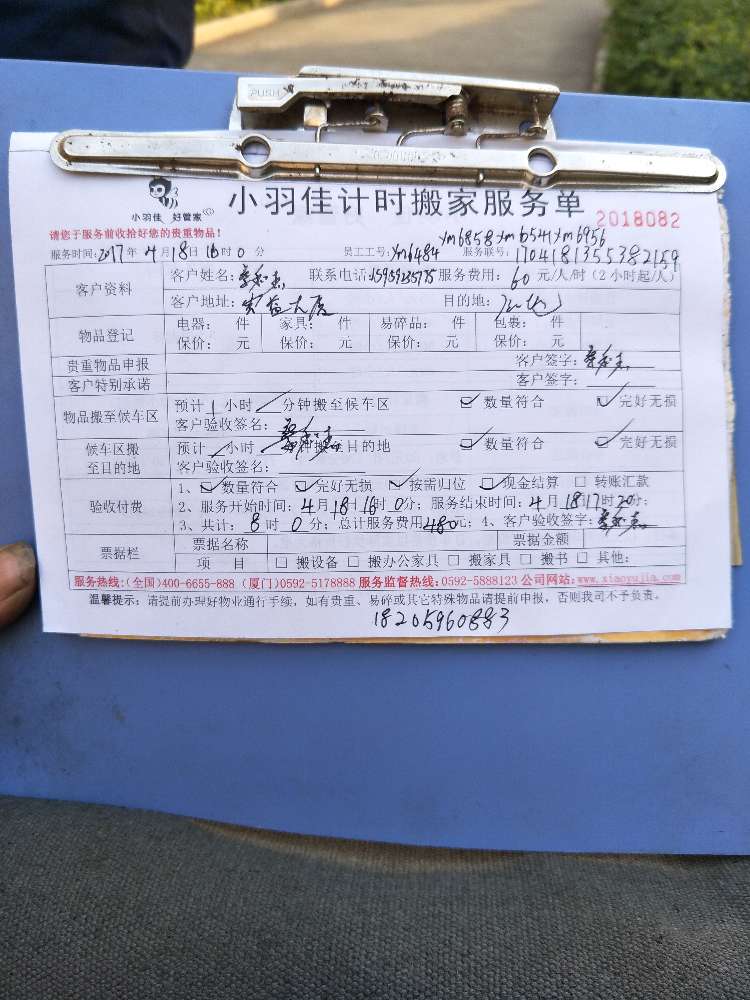 PUSH
小羽佳 好管家
小羽佳计时搬家服务单 2018082
请您于服务前收拾好您的贵重物品！ ym6858 ym6541 ym6956
服务时间：2017年4月18日16时0分 员工工号：ym6484 服务联号：1704181355382159
客户资料 客户姓名： 联系电话：15959235175 服务费用：60元/人/时（2小时起/人）
客户地址： 大厦 目的地：
物品登记 电器： 件 家具： 件 易碎品： 件 包裹： 件
保价： 元 保价： 元 保价： 元 保价： 元
贵重物品申报 客户签字：
客户特别承诺 客户签字：
物品搬至候车区 预计1小时 分钟搬至候车区 数量符合 完好无损
客户验收签名：
候车区搬至目的地 预计 小时 搬至目的地 数量符合 完好无损
客户验收签名：
验收付费 1、 数量符合 完好无损 按需归位 现金结算 转账汇款
2、服务开始时间：4月18日16时0分；服务结束时间：4月18日17时20分；
3、共计：8时0分；总计服务费用480元；4、客户验收签字：
票据栏 票据名称 票据金额
项 目 搬设备 搬办公家具 搬家具 搬书 其他：
服务热线：(全国)400-6655-888 (厦门)0592-5178888 服务监督热线：0592-5888123 公司网站：www.xiaoyujia.com
温馨提示：请提前办理好物业通行手续，如有贵重、易碎或其它特殊物品请提前申报，否则我司不予负责。
18205960883